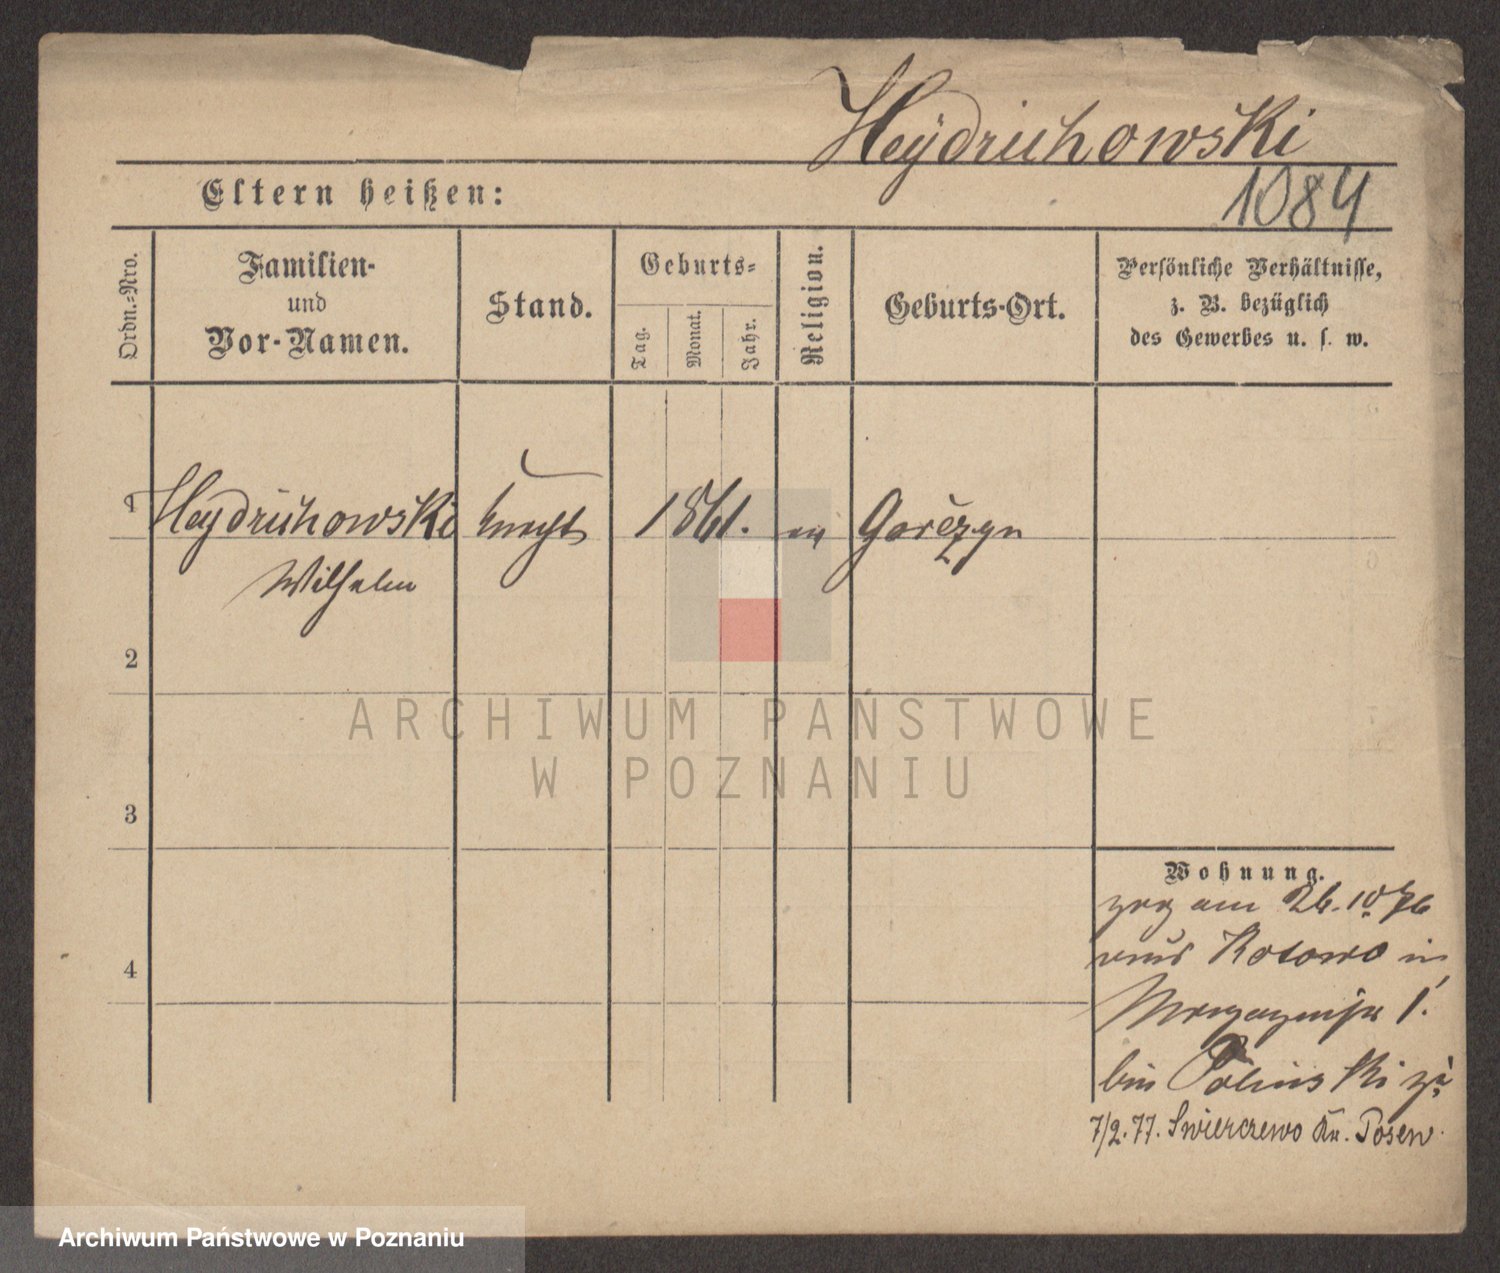 Heÿdrichowski
1084
Eltern heißen:
Ordn.-Nro.
Familien-
und
Vor-Namen.
Stand.
Geburts-
Tag.
Monat.
Jahr.
Religion.
Geburts-Ort.
Persönliche Verhältnisse,
z. B. bezüglich
des Gewerbes u. s. w.
1 Heydrichowski Knecht 1861. Gorczyn
Wilhelm
2
3
4
Wohnung.
zog am 26.10 76
aus Kotowo in
1.
bei Polinski zu
7/2.77. Swierczewo Kr. Posen.
ARCHIWUM PAŃSTWOWE
W POZNANIU
Archiwum Państwowe w Poznaniu